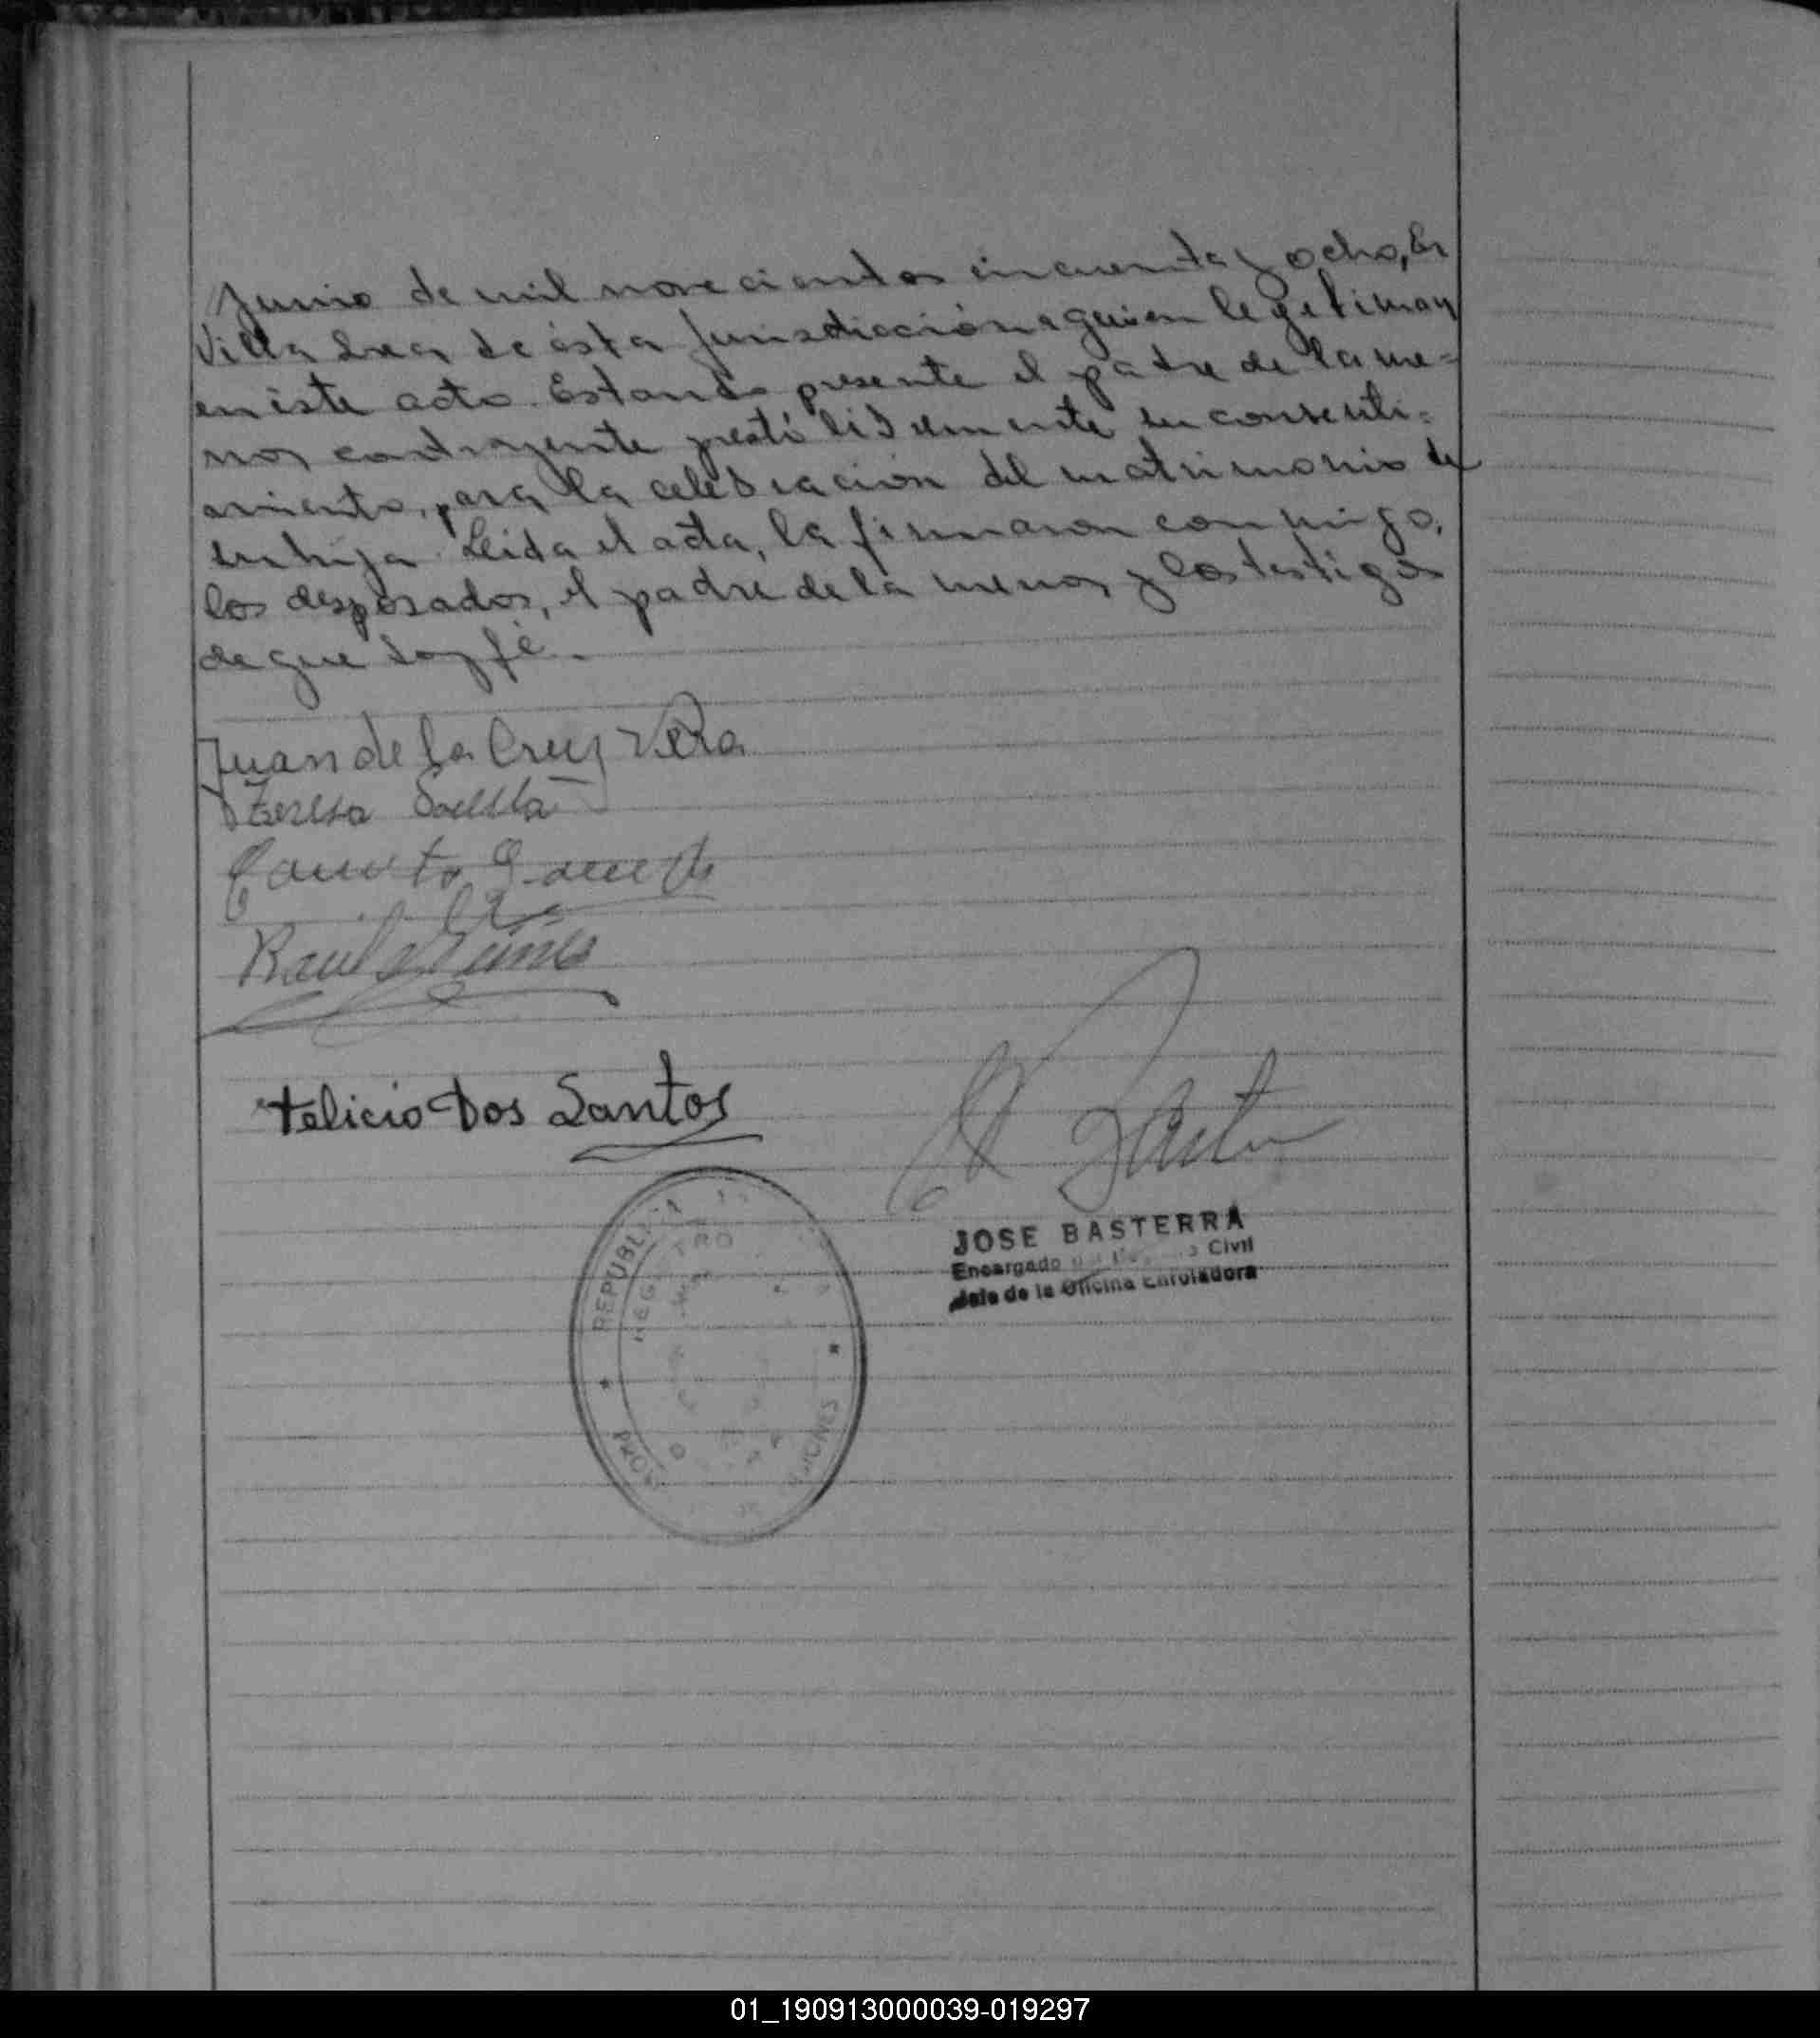 Junio de mil novecientos cincuenta y ocho, En
Villa de ésta jurisdicción a quien legitiman
en éste acto. Estando presente el padre de la me=
nor contrayente prestó su consenti=
amiento, para la celebración del matrimonio de
su hija. Leida el acta, la firmaron conmigo,
los desposados, el padre de la menor y los testigos
de que doy fé.
Juan de la Cruz Vera
Teresa
Raul
Felicio Dos Santos
JOSE BASTERRA
Encargado Civil
Jefe de la Oficina Enroladora
REPUBLICA
REGISTRO
MISIONES
01_190913000039-019297